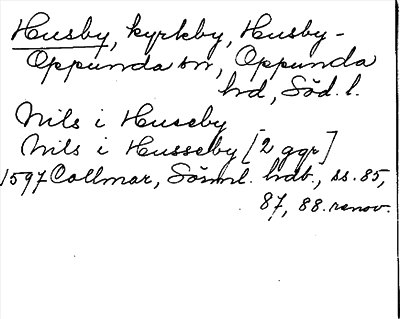 Husby, kyrkby, Husby-
Oppunda sn, Oppunda
hd, Söd. l.
Nils i Huseby
Nils i Husseby [2 ggr]
1597 Collmar, Sörml. hdb., ss. 85,
87, 88. renov.